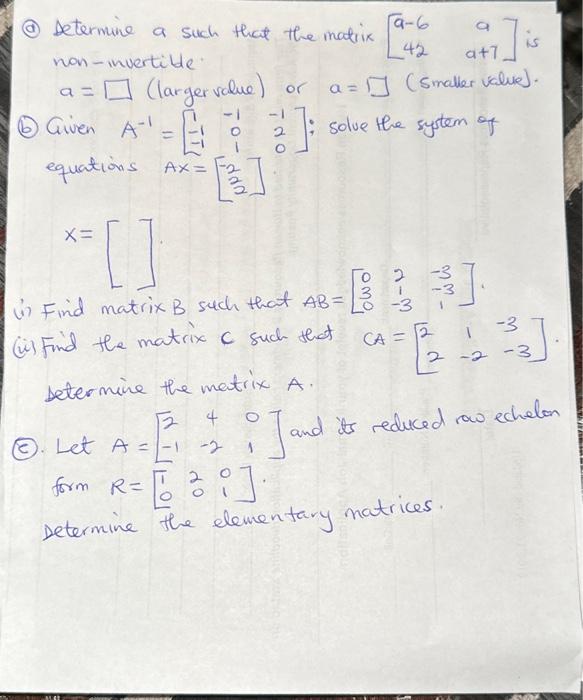 ⓐ Determine a such that the matrix [a-6 a
42 a+7] is
non-invertible.
a = □ (larger value) or a = □ (smaller value).
ⓑ Given A⁻¹ = [1 -1 -1
-1 0 2
-1 1 0]; solve the system of
equations AX = [-2
2
2]
X = [ ].
(i) Find matrix B such that AB = [0 2 -3
3 1 -3
0 -3 1].
(ii) Find the matrix C such that CA = [2 1 -3
2 -2 -3].
Determine the matrix A.
ⓒ. Let A = [2 4 0
-1 -2 1] and its reduced row echelon
form R = [1 2 0
0 0 1].
Determine the elementary matrices.